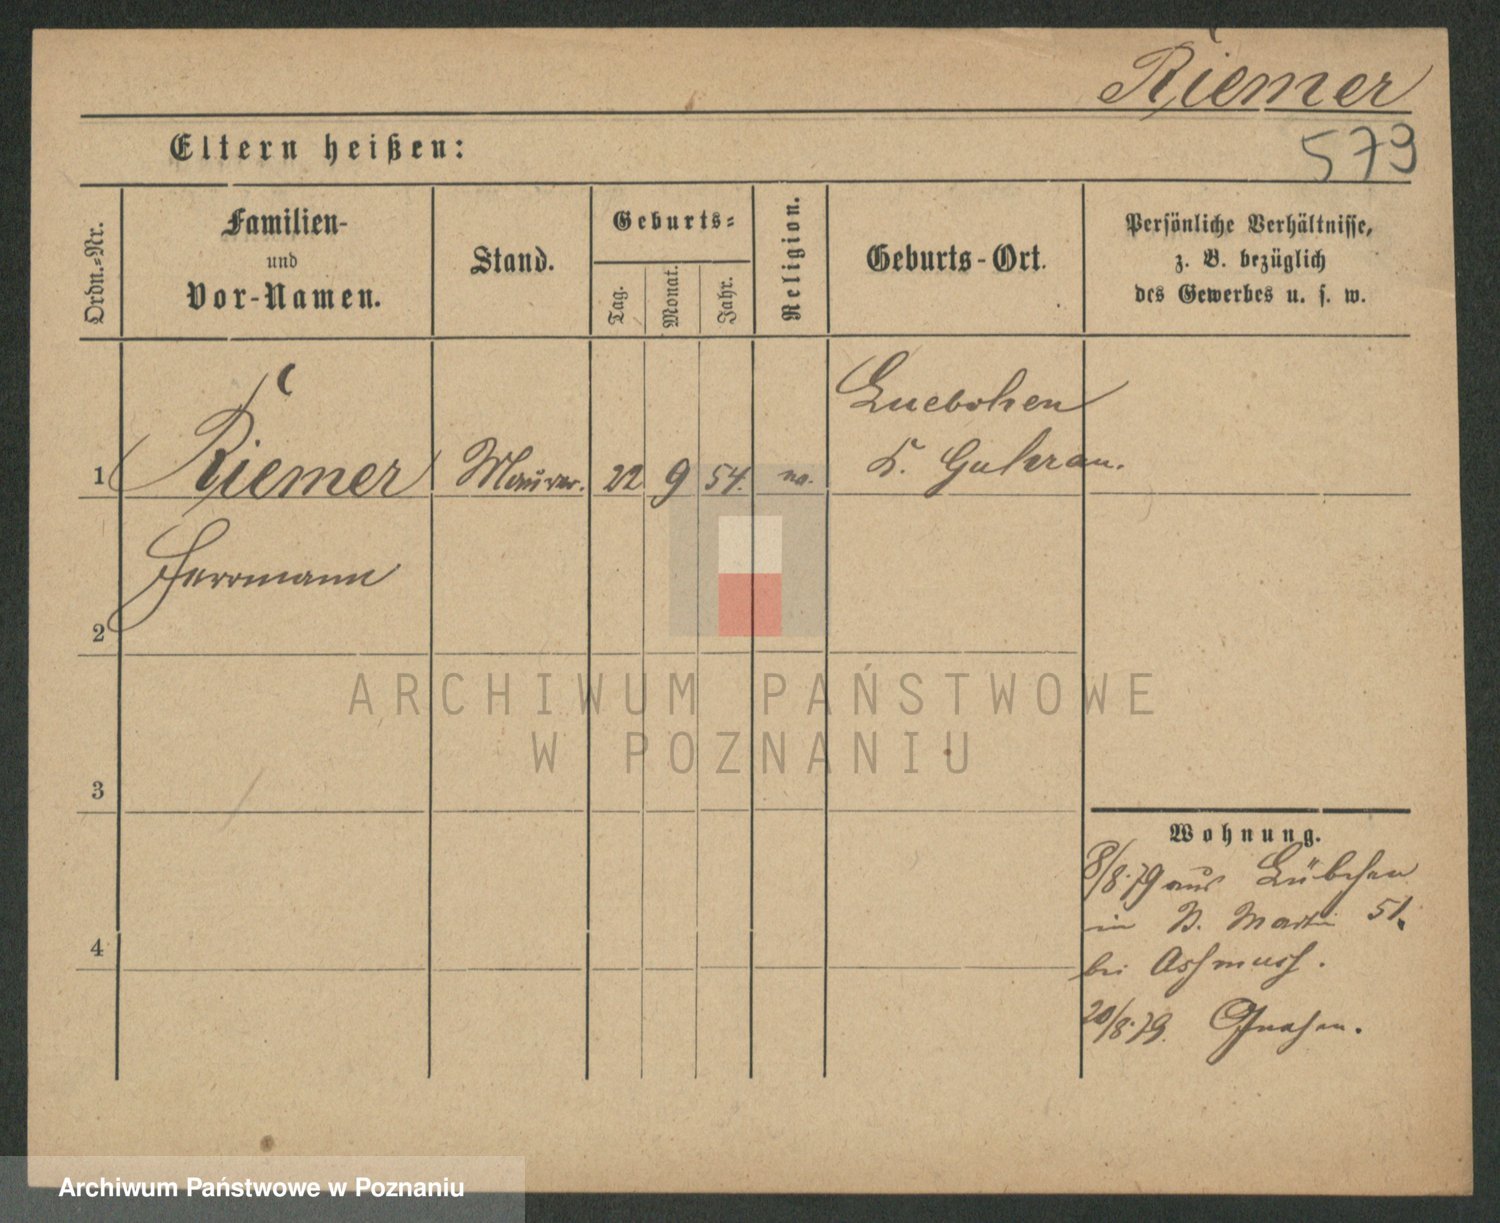 Riemer
579
Eltern heißen:
Ordn.-Nr.
Familien-
und
Vor-Namen.
Stand.
Geburts-
Tag.
Monat.
Jahr.
Religion.
Geburts-Ort.
Persönliche Verhältnisse,
z. B. bezüglich
des Gewerbes u. s. w.
1
Riemer
Maurer.
22
9
54.
Luebchen
K. Guhrau.
Herrmann
2
3
4
Wohnung.
8/8.79 aus Lübchen
in St. Martin 51.
bei
20/8.79.
ARCHIWUM PAŃSTWOWE
W POZNANIU
Archiwum Państwowe w Poznaniu